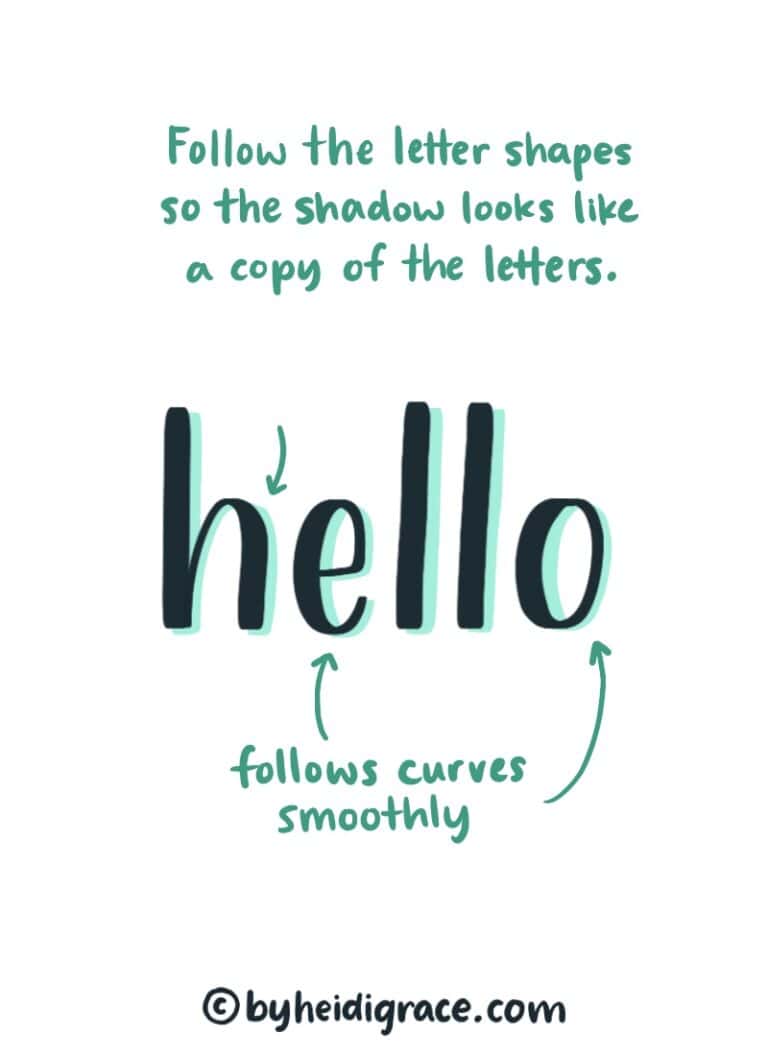 Follow the letter shapes
so the shadow looks like
a copy of the letters.
hello
follows curves
smoothly
©byheidigrace.com